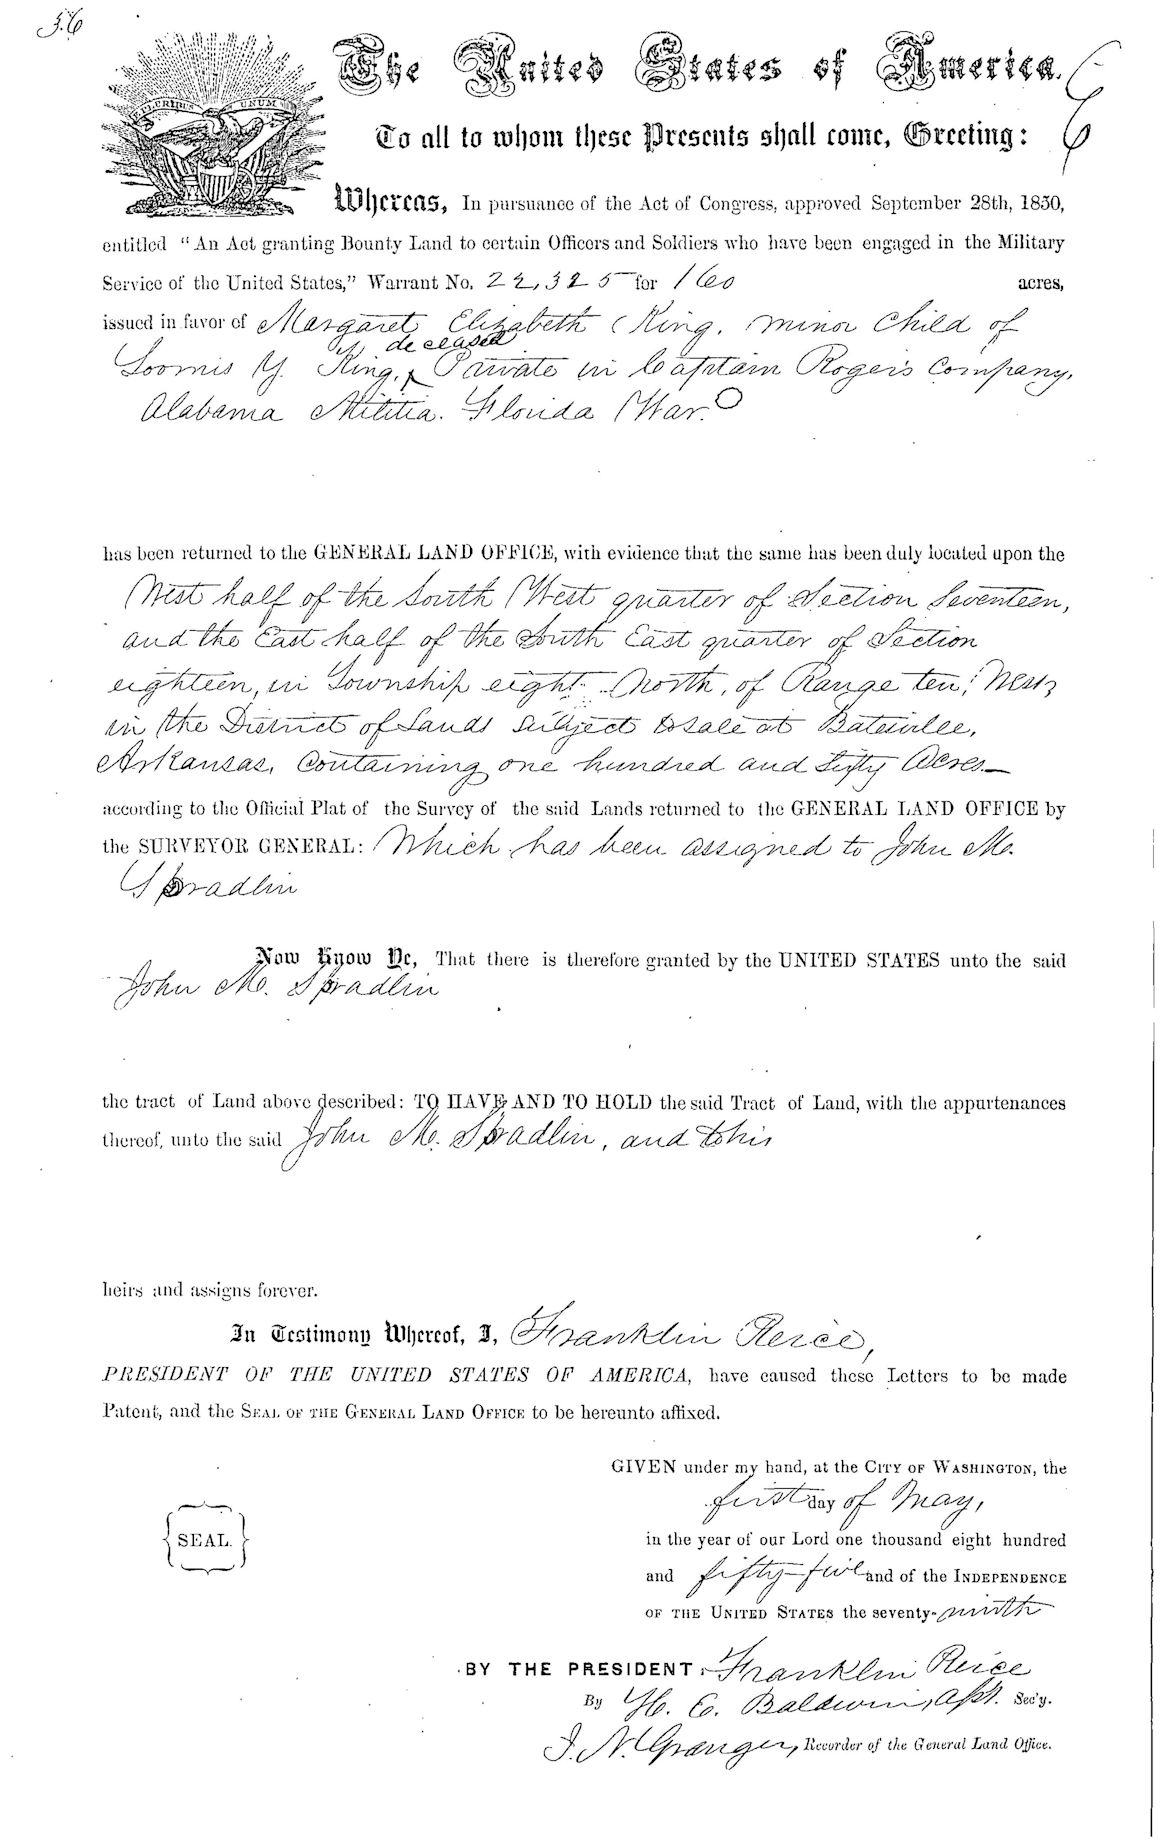 56
E PLURIBUS UNUM
The United States of America.
To all to whom these Presents shall come, Greeting:
Whereas, In pursuance of the Act of Congress, approved September 28th, 1850,
entitled "An Act granting Bounty Land to certain Officers and Soldiers who have been engaged in the Military
Service of the United States," Warrant No. 22,325 for 160 acres,
issued in favor of Margaret Elizabeth King, minor Child of
deceased
Loomis Y. King, Private in Captain Rogers Company,
Alabama Militia. Florida War.
has been returned to the GENERAL LAND OFFICE, with evidence that the same has been duly located upon the
West half of the South West quarter of Section Seventeen,
and the East half of the South East quarter of Section
eighteen, in Township eight North, of Range ten, West,
in the District of Lands Subject to sale at Batesville,
Arkansas, Containing one hundred and Sixty Acres
according to the Official Plat of the Survey of the said Lands returned to the GENERAL LAND OFFICE by
the SURVEYOR GENERAL: Which has been assigned to John M.
Spradlin
Now Know Ye, That there is therefore granted by the UNITED STATES unto the said
John M. Spradlin
the tract of Land above described: TO HAVE AND TO HOLD the said Tract of Land, with the appurtenances
thereof, unto the said John M. Spradlin, and to his
heirs and assigns forever.
In Testimony Whereof, I, Franklin Pierce,
PRESIDENT OF THE UNITED STATES OF AMERICA, have caused these Letters to be made
Patent, and the SEAL OF THE GENERAL LAND OFFICE to be hereunto affixed.
GIVEN under my hand, at the CITY OF WASHINGTON, the
first day of May,
SEAL.
in the year of our Lord one thousand eight hundred
and fifty-five and of the INDEPENDENCE
OF THE UNITED STATES the seventy-ninth
BY THE PRESIDENT: Franklin Pierce
By H. E. Baldwin, Asst. Sec'y.
J. N. Granger, Recorder of the General Land Office.